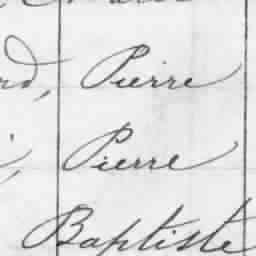 rd, Pierre
, Pierre
Baptiste